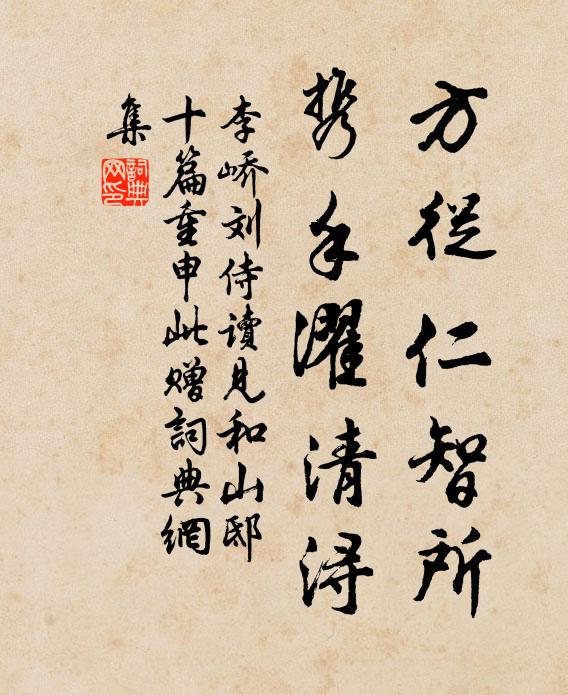 方從仁智所
携手濯清浔
李峤刘侍讀見和山邸
十篇重申此赠詞典網
集
詞典
网印